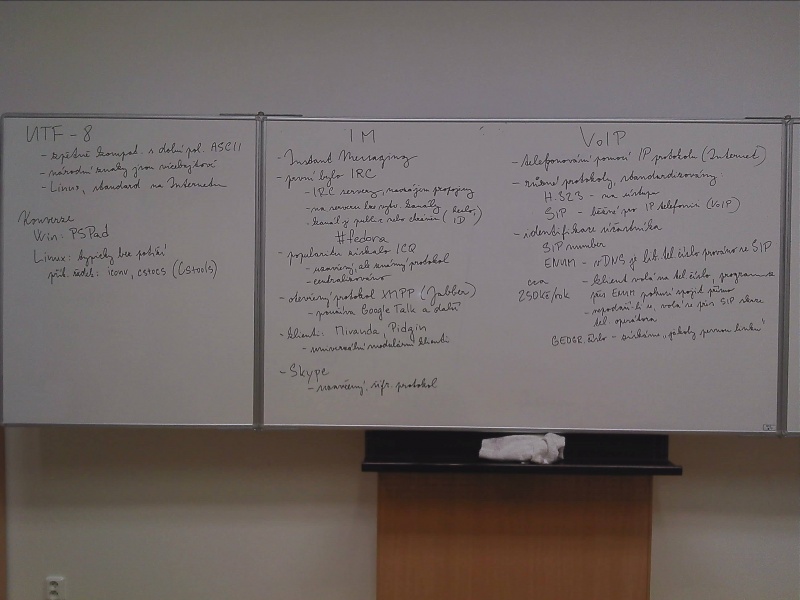 UTF-8
- zpětně kompat. s dolní pol. ASCII
- národní znaky jsou vícebajtové
- Linux, standard na Internetu
Konverze
Win: PSPad
Linux: typicky bez potíží
přík. řádek: iconv, cstocs (Cstools)
IM
- Instant Messaging
- první bylo IRC
- IRC servery, navzájem propojeny
- na serveru lze vytv. kanály
- kanál je public nebo chráněn (heslo, ID)
#fedora
- popularitu získalo ICQ
- uzavřený, ale známý protokol
- centralizováno
- otevřený protokol XMPP (Jabber)
- používá Google Talk a další
- klienti: Miranda, Pidgin
- univerzální modulární klienti
- Skype
- uzavřený, šifr. protokol
VoIP
- telefonování pomocí IP protokolu (Internet)
- různé protokoly, standardizovány
H.323 - na ústupu
SIP - běžné pro IP telefonii (VoIP)
- identifikace účastníka
SIP number
ENUM - v DNS je lib. tel. číslo provázáno se SIP
cca 250Kč/rok
- klient volá na tel. číslo, program se
přes ENUM pokusí spojit přímo
- nepodaří-li se, volá se přes SIP ústř.
tel. operátora
GEOGR. číslo - získáme "jakoby pevnou linku"